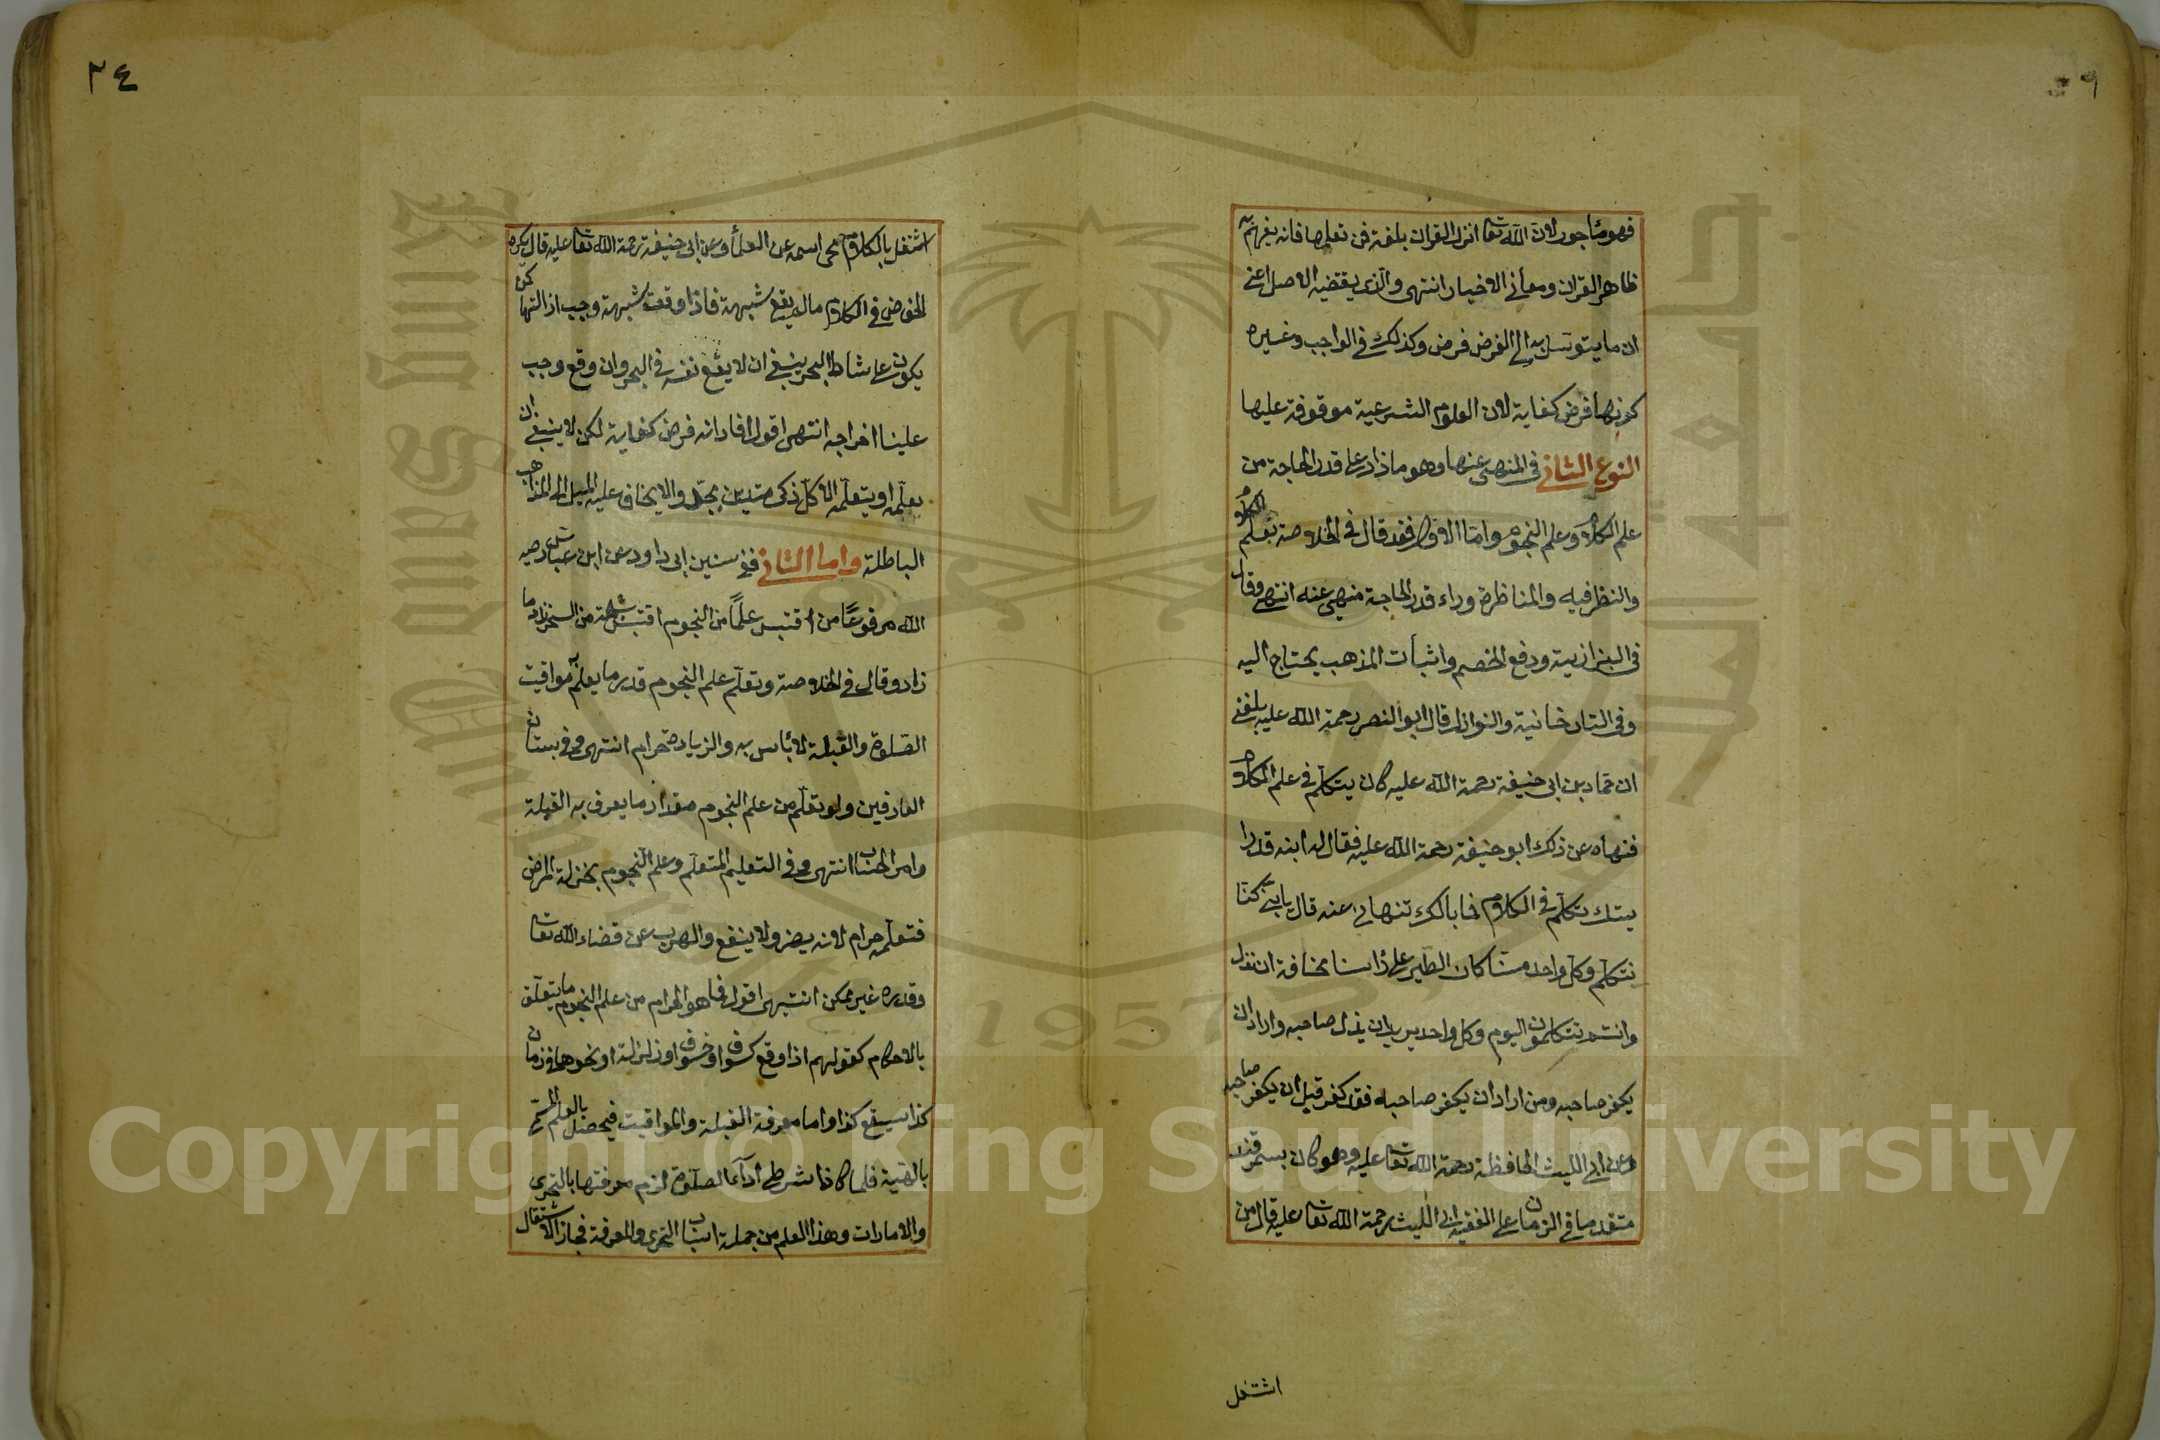 فهو مأجور لان الله تعا انزل القران بلغة فمن تعلمها فانه يفهم به
ظاهر القران ومعانى الاخبار انتهى والذى يقتضيه الاصل اعنى
ان ما يتوسل به الى الفرض فرض وكذلك فى الواجب وغيره
كونها فرض كفاية لان العلوم الشرعية موقوفة عليها
النوع الثانى فى المنهى عنها وهو ما زاد على قدر الحاجة من
علم الكلام وعلم النجوم واما الاول فقد قال فى الخلاصة تعلم الكلام
والنظر فيه والمناظرة وراء قدر الحاجة منهى عنه انتهى وقال
فى البزازية ودفع الخصم واثبات المذهب يحتاج اليه
وفى التتارخانية والنوازل قال ابو النصر رحمة الله عليه بلغنى
ان حماد بن ابى حنيفة رحمة الله عليه كان يتكلم فى علم الكلام
فنهاه عن ذلك ابو حنيفة رحمة الله عليه فقال له ابنه قد را
يتك تتكلم فى الكلام فما بالك تنهانى عنه قال يا بنى كنا
نتكلم وكل واحد منا كان الطير على رأسنا مخافة ان نزل
وانتم تتكلمون اليوم وكل واحد يريد ان يذل صاحبه واراد ان
يكفر صاحبه ومن اراد ان يكفر صاحبه فقد كفر قبل ان يكفر صاحبه
وعن ابى الليث الحافظة رحمة الله تعا عليه وهو كان بسمرقند
متقدما فى الزمان على الفقيه ابى الليث رحمة الله تعا عليه قال من
اشتغل
٣٤
اشتغل بالكلام محى اسمه عن العلماء وعن ابى حنيفة رحمة الله تعا عليه قال يكره
الخوض فى الكلام ما لم يقع شبهة فاذا وقعت شبهة وجب ازالتها كمن
يكون على شاطئ البحر ينبغى ان لا يقع نفسه فى البحر وان وقع وجب
علينا اخراجه انتهى اقول افاد انه فرض كفاية لكن لا ينبغى ان
يعلمه او يتعلمه الا كل ذكى متدين مجد والا يخاف عليه الميل الى المذاهب
الباطلة واما الثانى ففى سنن ابى داود عن ابن عباس رضى
الله مرفوعا من اقتبس علما من النجوم اقتبس شعبة من السحر زاد ما
زاد وقال فى الخلاصة وتعلم علم النجوم قدر ما يعلم به مواقيت
الصلوة والقبلة لا بأس به والزيادة حرام انتهى وفى بستان
العارفين ولو تعلم من علم النجوم مقدار ما يعرف به القبلة
وامر الحساب انتهى وفى التعليم المتعلم وعلم النجوم بمنزلة المرض
فتعلمه حرام لانه يضر ولا ينفع والهرب عن قضاء الله تعا
وقدره غير ممكن انتهى اقول فما هو الحرام من علم النجوم ما يتعلق
بالاحكام كقولهم اذا وقع كسوف او خسوف او زلزلة او نحوها فى زمان
كذا سيقع كذا واما معرفة القبلة والمواقيت فيحصل بالعلم المسمى
بالهيئة فلما كانا شرطى اداء الصلوة لزم معرفتها بالتحرى
والامارات وهذا العلم من جملة اسباب التحرى والمعرفة فجاز الاشتغال
King Saud University
1957
Copyright © King Saud University